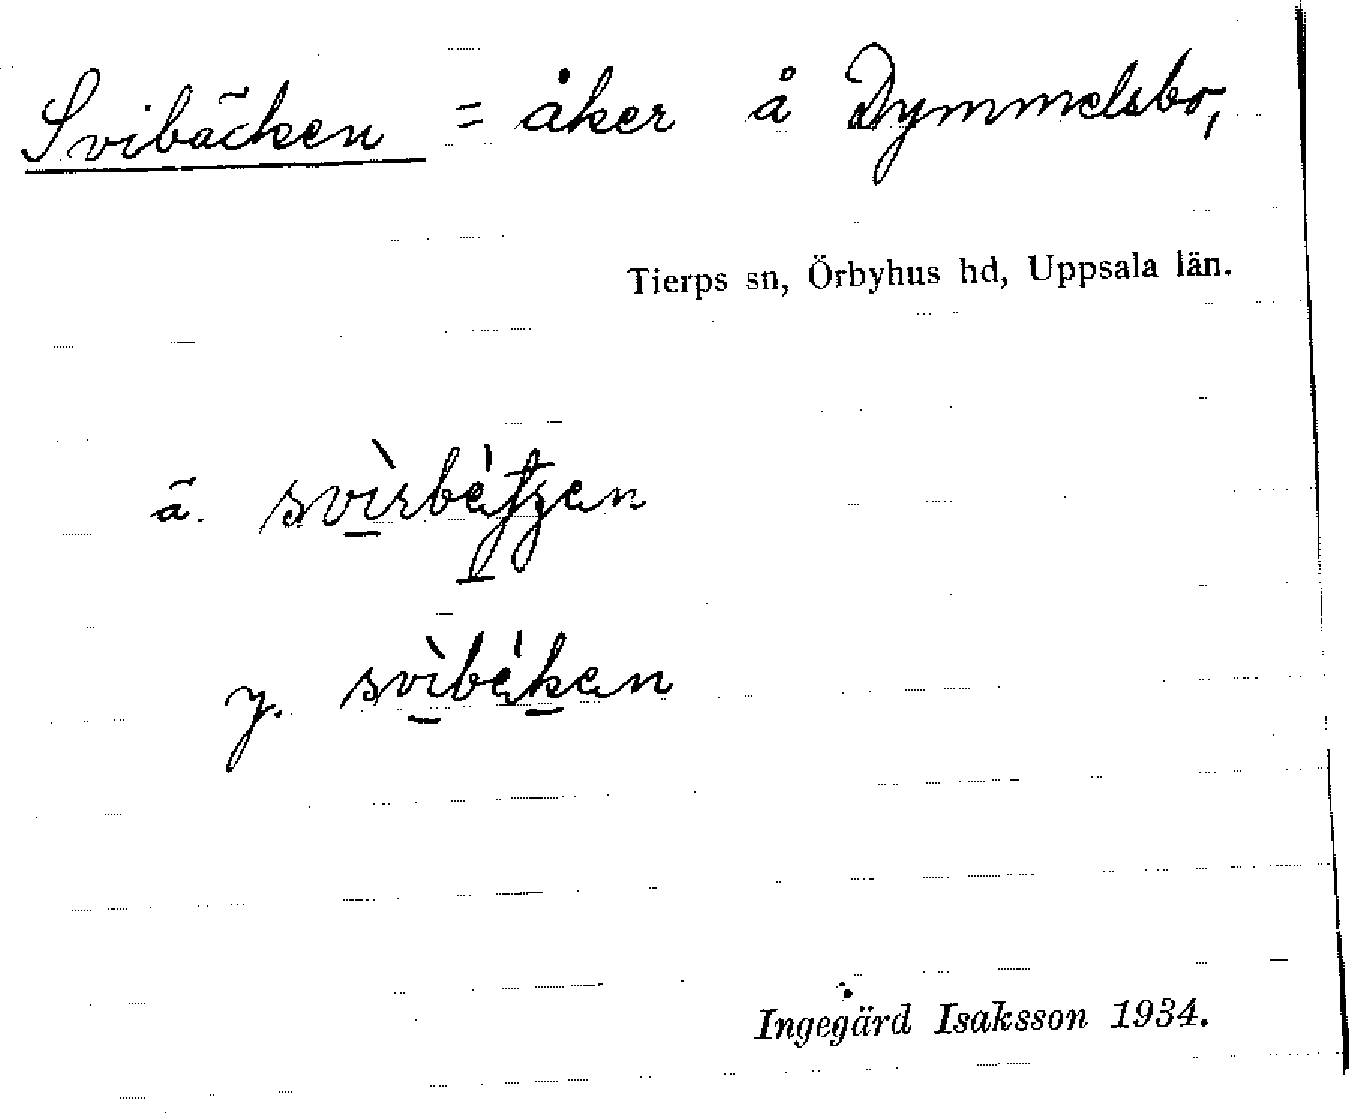 Svibäcken = åker å Dymmelsbo,
Tierps sn, Örbyhus hd, Uppsala län.
ä. svìrbétʒen
y. svìbéken
Ingegärd Isaksson 1934.